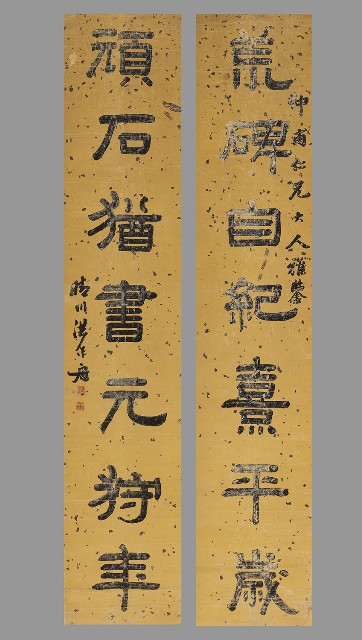 仲甫仁兄大人雅鑒
荒碑自紀熹平歲
頑石猶書元狩年
晴川洪作